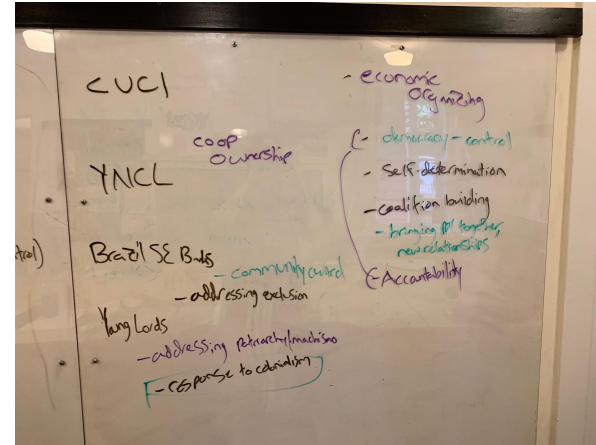 CUCI
coop
ownership
YNCL
Brazil SE
- community control
- addressing exclusion
Young Lords
- addressing patriarchy/machismo
- response to colonialism
- economic
Organizing
- democracy - control
- Self-determination
- coalition building
- bringing ppl together,
new relationships
- Accountability
trol)